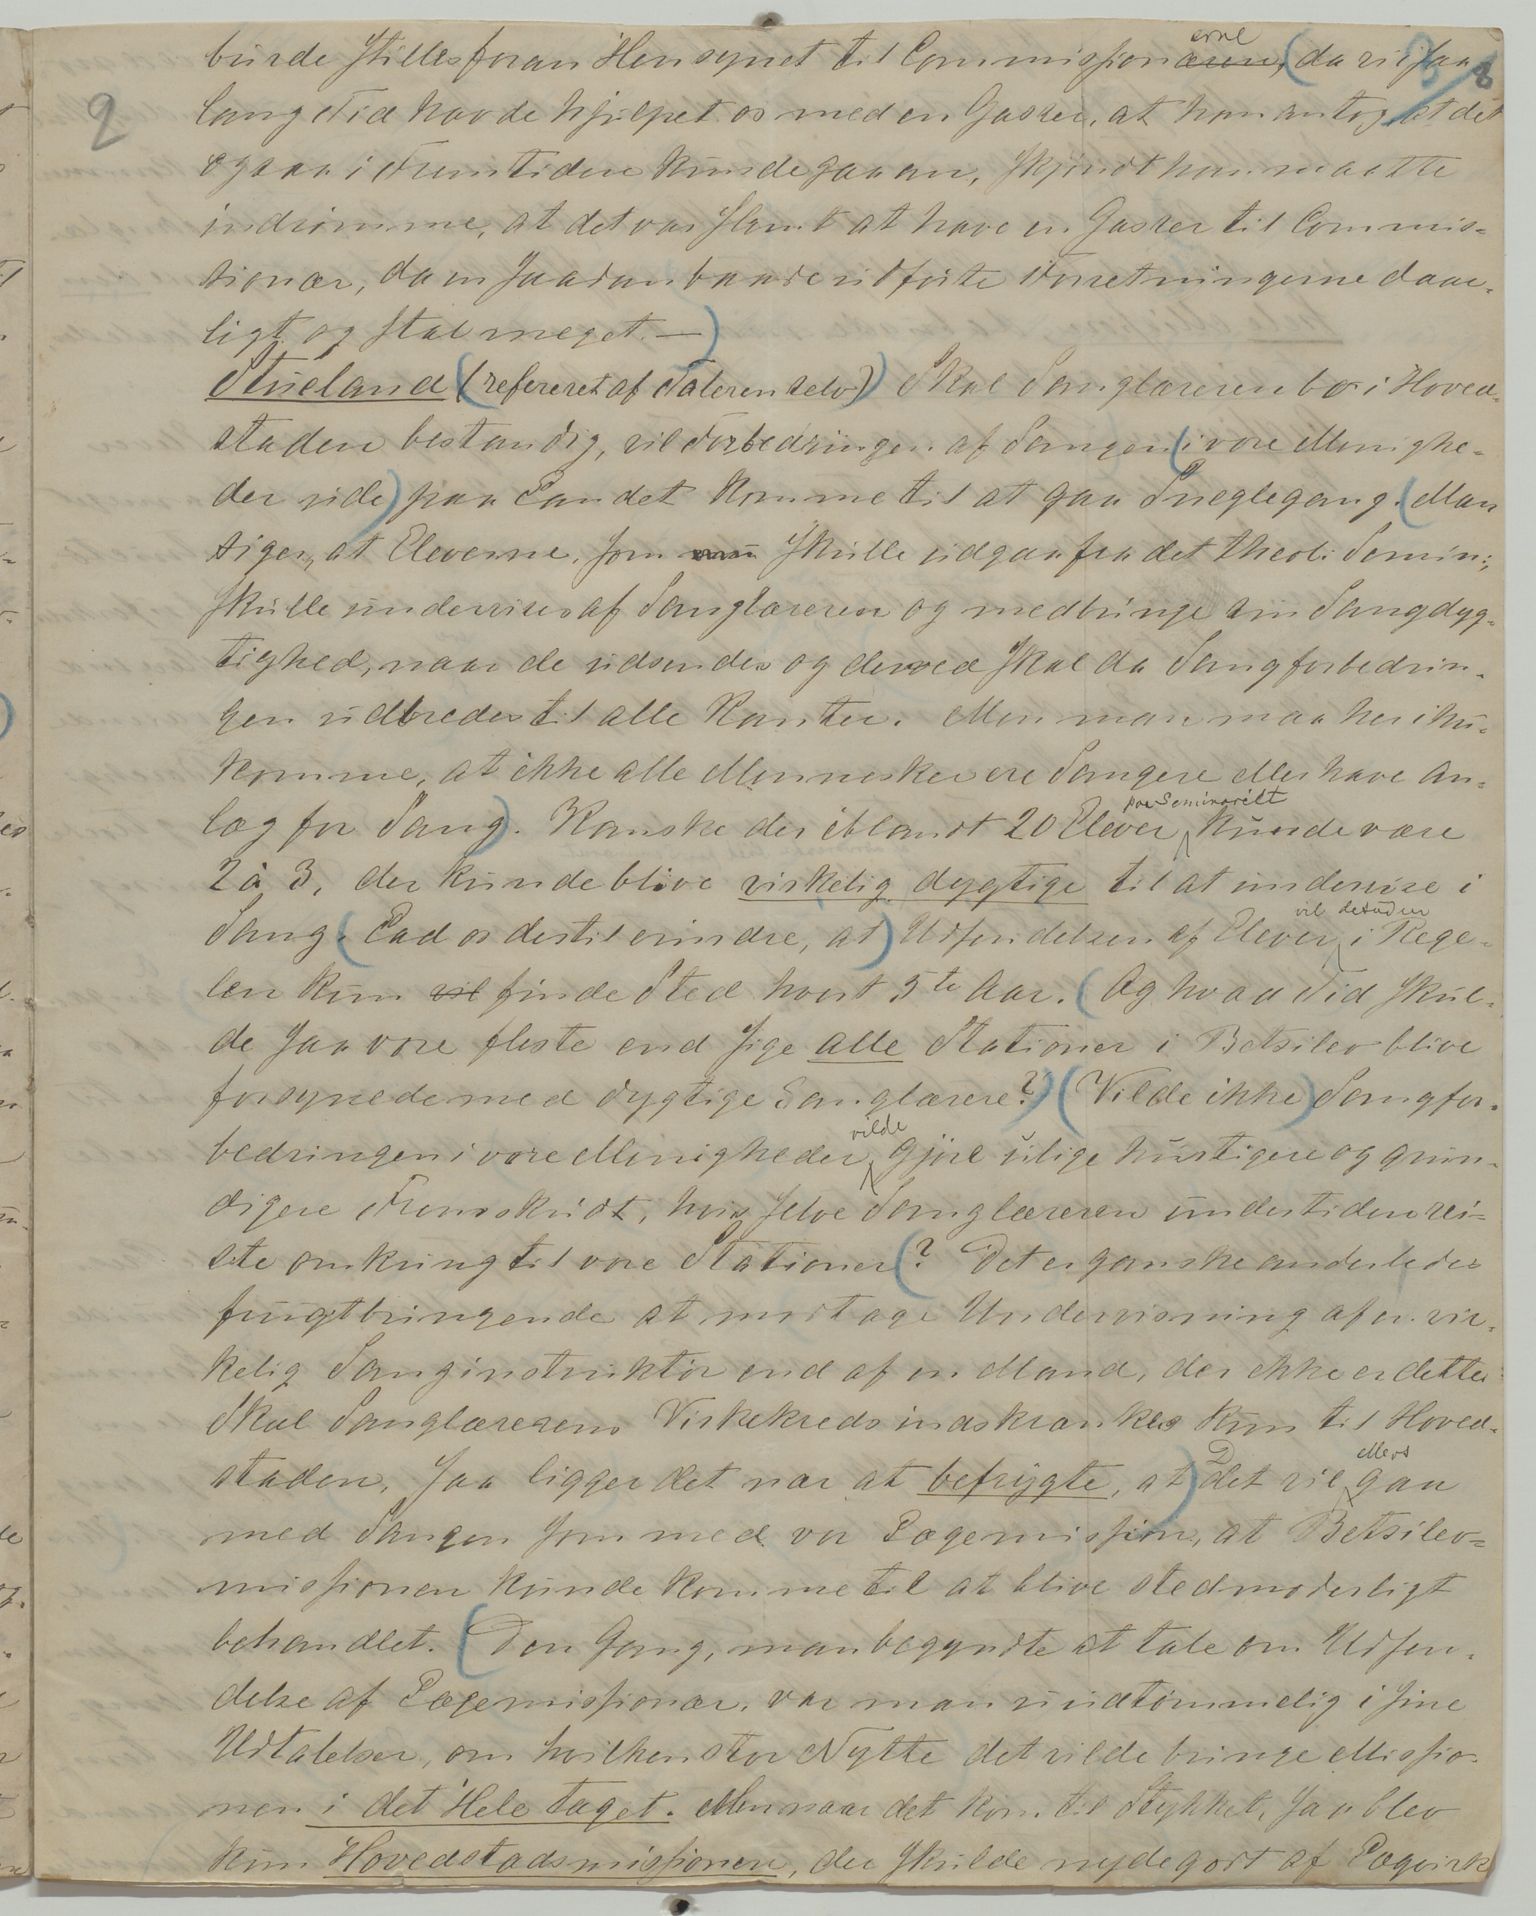 burde stilles foran Hensynet til Commissionæren, erne (da vi i saa 8
2
lang Tid havde hjulpet os med en Gasser, at han antog at det
ogsaa i Fremtiden kunde gaa an, skjøndt han maatte
indrømme, at det var slemt at have en Gasser til Commis-
sionær, da en saadan baade udførte Forretningerne daar-
ligt og stal meget. —)
Stueland (refereret af Taleren selv) Skal Sanglæreren bo i Hoved-
staden bestandig, vil Forbedringen af Sangen (i vore Menighe-
der ude) paa Landet komme til at gaa Sneglegang. (Man
siger, at Eleverne, som nu skulle udgaa fra det theol. Semin:,
skulle undervises af Sanglæreren og medbringe sin Sangdyg-
tighed, naar de udsendes og derved skal da Sangforbedrin-
gen udbredes til alle Kanter. Men man maa her ihu-
komme, at ikke alle Mennesker ere Sangere eller have An-
læg for Sang). Kanske der iblandt 20 Elever paa Seminariet kunde være
2 à 3, der kunde blive virkelig dygtige til at undervise i
Sang. (Lad os dertil erindre, at) Udsendelsen af Elever vil desuden i Rege-
len kun vil finde Sted hvert 5te Aar. (Og hvad Tid skul-
de saa vore fleste end sige alle Stationer i Betsileo blive
forsynede med dygtige Sanglærere?) (Vilde ikke) Sangfor-
bedringen i vore Menigheder vilde gjøre ulige hurtigere og grun-
digere Fremskridt, hvis selve Sanglæreren undertiden rei-
ste omkring til vore Stationer (? Det er ganske anderledes
frugtbringende at modtage Undervisning af en vir-
kelig Sanginstruktør end af en Mand, der ikke er dette.
Skal Sanglærerens Virkekreds indskrænkes kun til Hoved-
staden, saa ligger det nær at befrygte, at) Det vil ellers gaa
med Sangen som med vor Lægemission, at Betsileo-
missionen kunde komme til at blive stedmoderligt
behandlet. (Den Gang, man begyndte at tale om Udsen-
delse af Lægemissionær, var man uudtømmelig i sine
Udtalelser, om hvilken stor Nytte det vilde bringe Missio-
nen i det Hele taget. Men naar det kom til Stykket, saa blev
kun Hovedstadsmissionen, der skulde nyde godt af Lægevirk